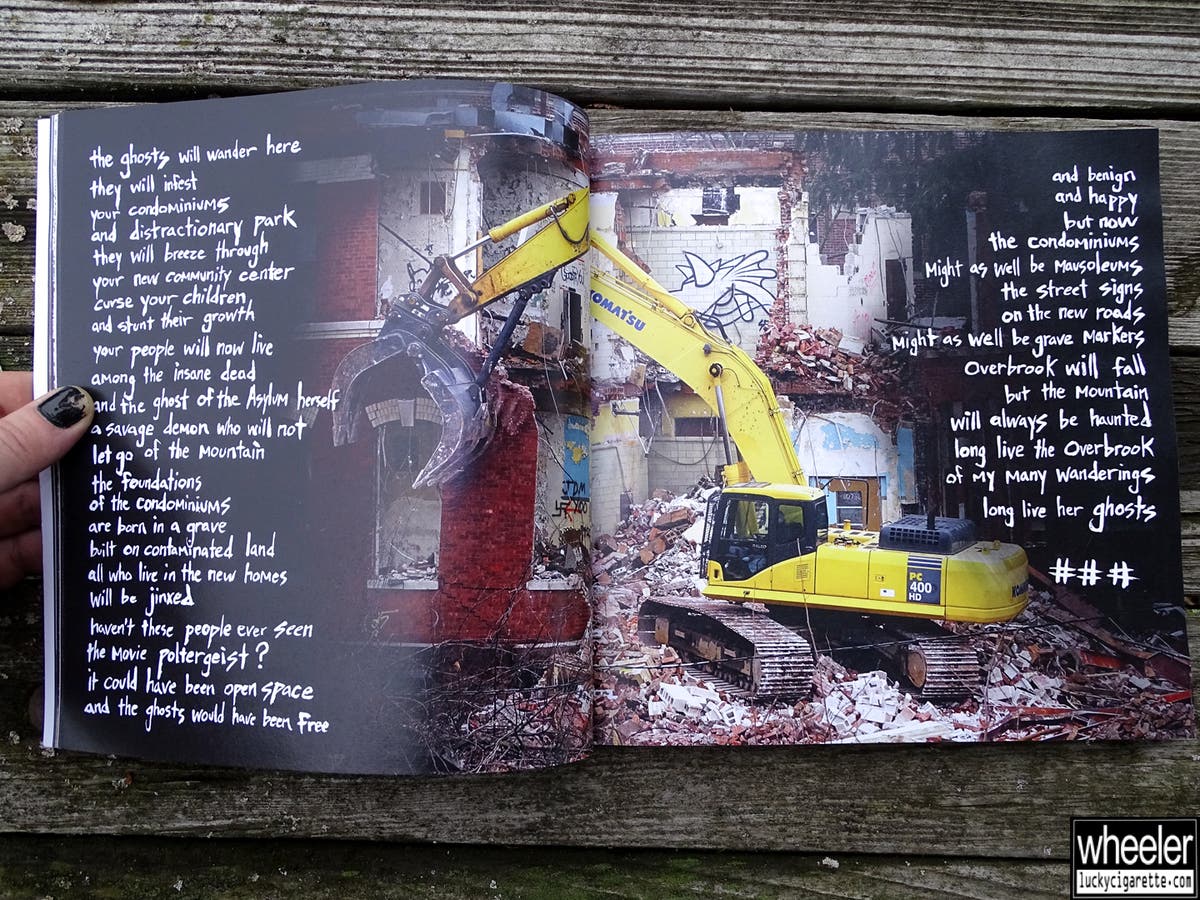 the ghosts will wander here
they will infest
your condominiums
and distractionary park
they will breeze through
your new community center
curse your children
and stunt their growth
your people will now live
among the insane dead
and the ghost of the Asylum herself
a savage demon who will not
let go of the Mountain
the foundations
of the condominiums
are born in a grave
built on contaminated land
all who live in the new homes
will be jinxed
haven't these people ever seen
the movie poltergeist?
it could have been open space
and the ghosts would have been free
and benign
and happy
but now
the condominiums
Might as well be Mausoleums
the street signs
on the new roads
Might as well be grave Markers
Overbrook will fall
but the Mountain
will always be haunted
long live the Overbrook
of My Many Wanderings
long live her ghosts
###
KOMATSU
JDM
PC
400
HD
wheeler
luckycigarette.com